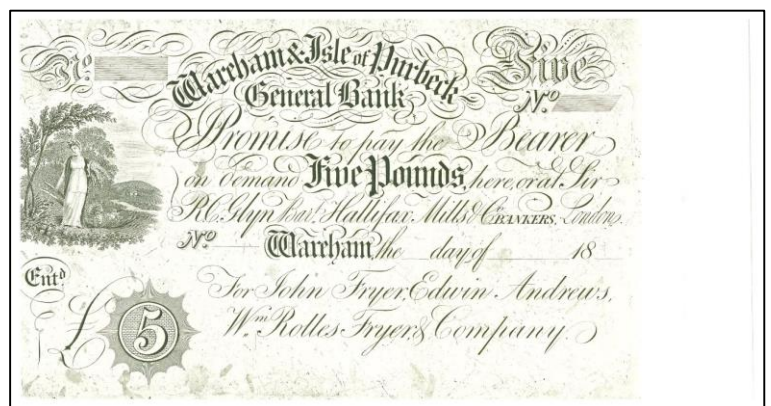 No
Five
Wareham & Isle of Purbeck
General Bank
No
I Promise to pay the Bearer
on Demand Five Pounds, here, or at Sir
R.C. Glyn Bart. Hallifax, Mills & Co BANKERS, London.
No Wareham, the day of 18
Entd.
For John Fryer, Edwin Andrews,
Wm. Rolles Fryer, & Company.
£5